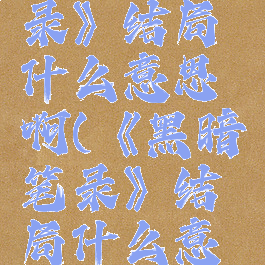 录》结局
什么意思
啊(《黑暗
笔录》结
局什么意